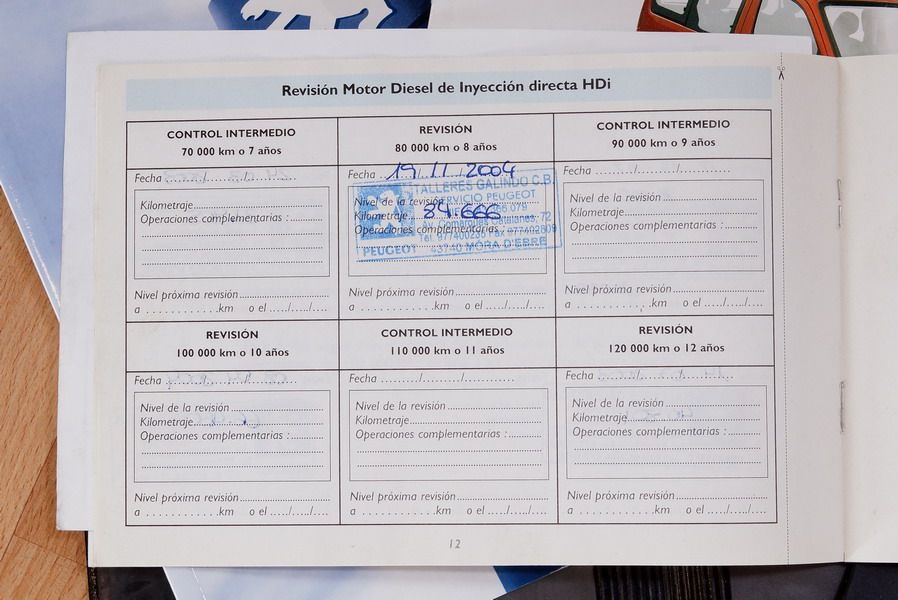 Revisión Motor Diesel de Inyección directa HDi
CONTROL INTERMEDIO
70 000 km o 7 años
Fecha ......../......../............
Kilometraje
Operaciones complementarias :
Nivel próxima revisión
a ............km o el ...../...../....
REVISIÓN
80 000 km o 8 años
Fecha 19/11/2004
Nivel de la revisión
Kilometraje 84.666
Operaciones complementarias :
TALLERES GALINDO C.B.
SERVICIO PEUGEOT
Av. Comarques Catalanes, 72
Tel. 977400235 Fax 977402809
PEUGEOT 43740 MÓRA D'EBRE
Nivel próxima revisión
a ............km o el ...../...../....
CONTROL INTERMEDIO
90 000 km o 9 años
Fecha ......../......../............
Kilometraje
Operaciones complementarias :
Nivel próxima revisión
a ............km o el ...../...../....
REVISIÓN
100 000 km o 10 años
Fecha ......../......../............
Nivel de la revisión
Kilometraje
Operaciones complementarias :
Nivel próxima revisión
a ............km o el ...../...../....
CONTROL INTERMEDIO
110 000 km o 11 años
Fecha ......../......../............
Nivel de la revisión
Kilometraje
Operaciones complementarias :
Nivel próxima revisión
a ............km o el ...../...../....
REVISIÓN
120 000 km o 12 años
Fecha ......../......../............
Nivel de la revisión
Kilometraje
Operaciones complementarias :
Nivel próxima revisión
a ............km o el ...../...../....
12